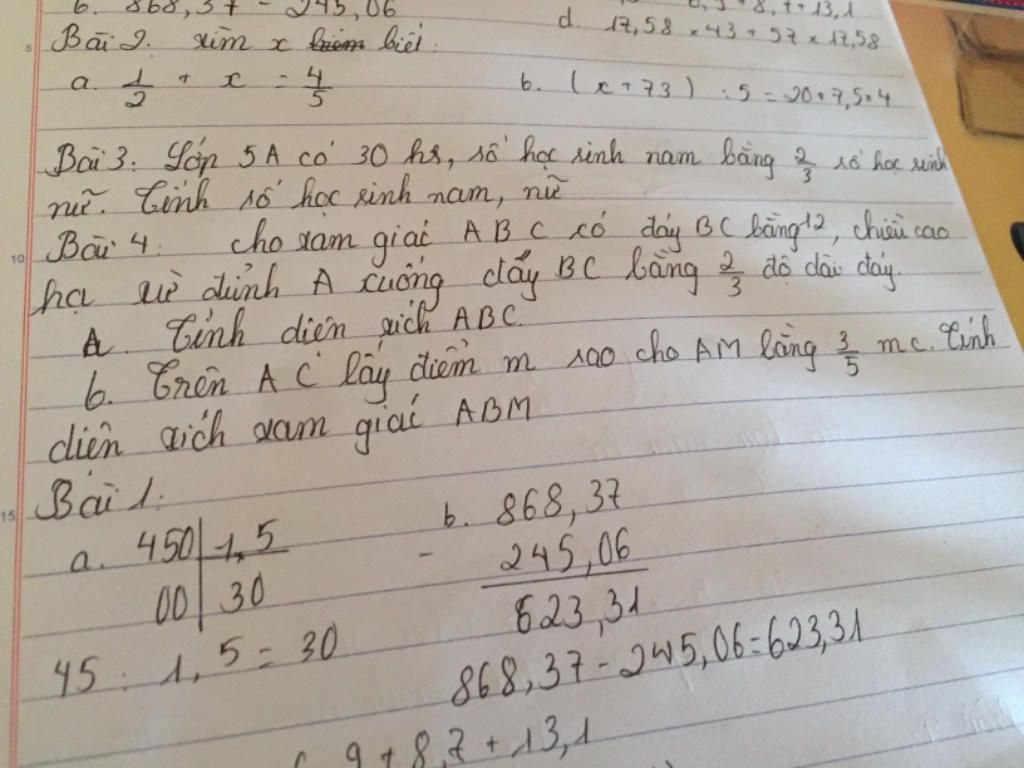 b. 868,37 - 245,06
9 + 8,7 + 13,1
d. 17,58 × 43 + 57 × 17,58
Bài 2. tìm x biết:
a. 1/2 + x = 4/5
b. (x + 73) : 5 = 20 + 7,5 × 4
Bài 3: Lớp 5A có 30 hs, số học sinh nam bằng 2/3 số học sinh
nữ. Tính số học sinh nam, nữ
Bài 4: cho tam giác ABC có đáy BC bằng 12, chiều cao
hạ từ đỉnh A xuống đáy BC bằng 2/3 độ dài đáy.
A. Tính diện tích ABC.
b. Trên AC lấy điểm m sao cho AM bằng 3/5 mc. Tính
diện tích tam giác ABM
Bài 1:
a. 450 | 1,5
00 | 30
45 : 1,5 = 30
b. 868,37
- 245,06
623,31
868,37 - 245,06 = 623,31
9 + 8,7 + 13,1